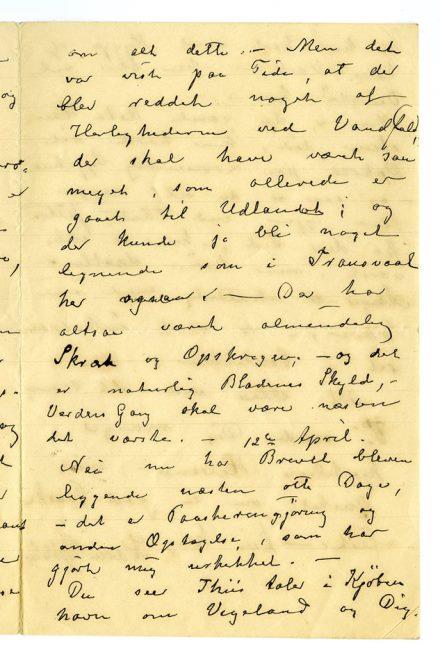 om alt dette. – Men det
var vist paa Tide, at der
blev reddet noget af
Herlighederne ved Vandfald,
der skal have været saa
meget, som allerede er
gaaet til Udlandet; og
der kunde jo bli noget
lignende som i Transvaal
her ogsaa. – Der har
altsaa været almindelig
Skræk og Opskregne; – og det
er naturlig Bladenes Skyld, –
Verdens Gang skal være næsten
det værste. – 12te April.
Naa nu har Brevet bleven
liggende næsten otte Dage,
– det er Paaskerengjøring og
anden Opstagelse, som har
gjort mig
Du seer Thiis taler i Kjøben
havn om Vigeland og Dig.